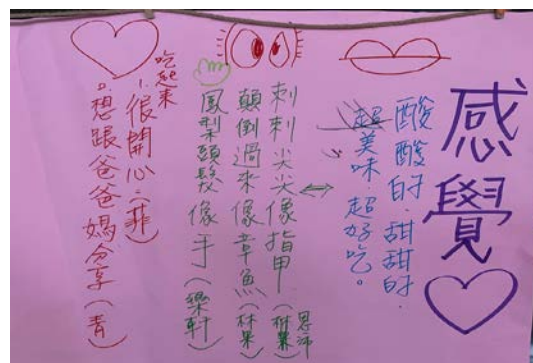 感覺
酸酸的.甜甜的.
超美味.超好吃。
刺刺尖尖像指甲(林業)
恩沛
顛倒過來像章魚(林果)
鳳梨頭髮像手(樂軒)
吃起來
1.很開心(菲)
2.想跟爸爸媽分享(青)